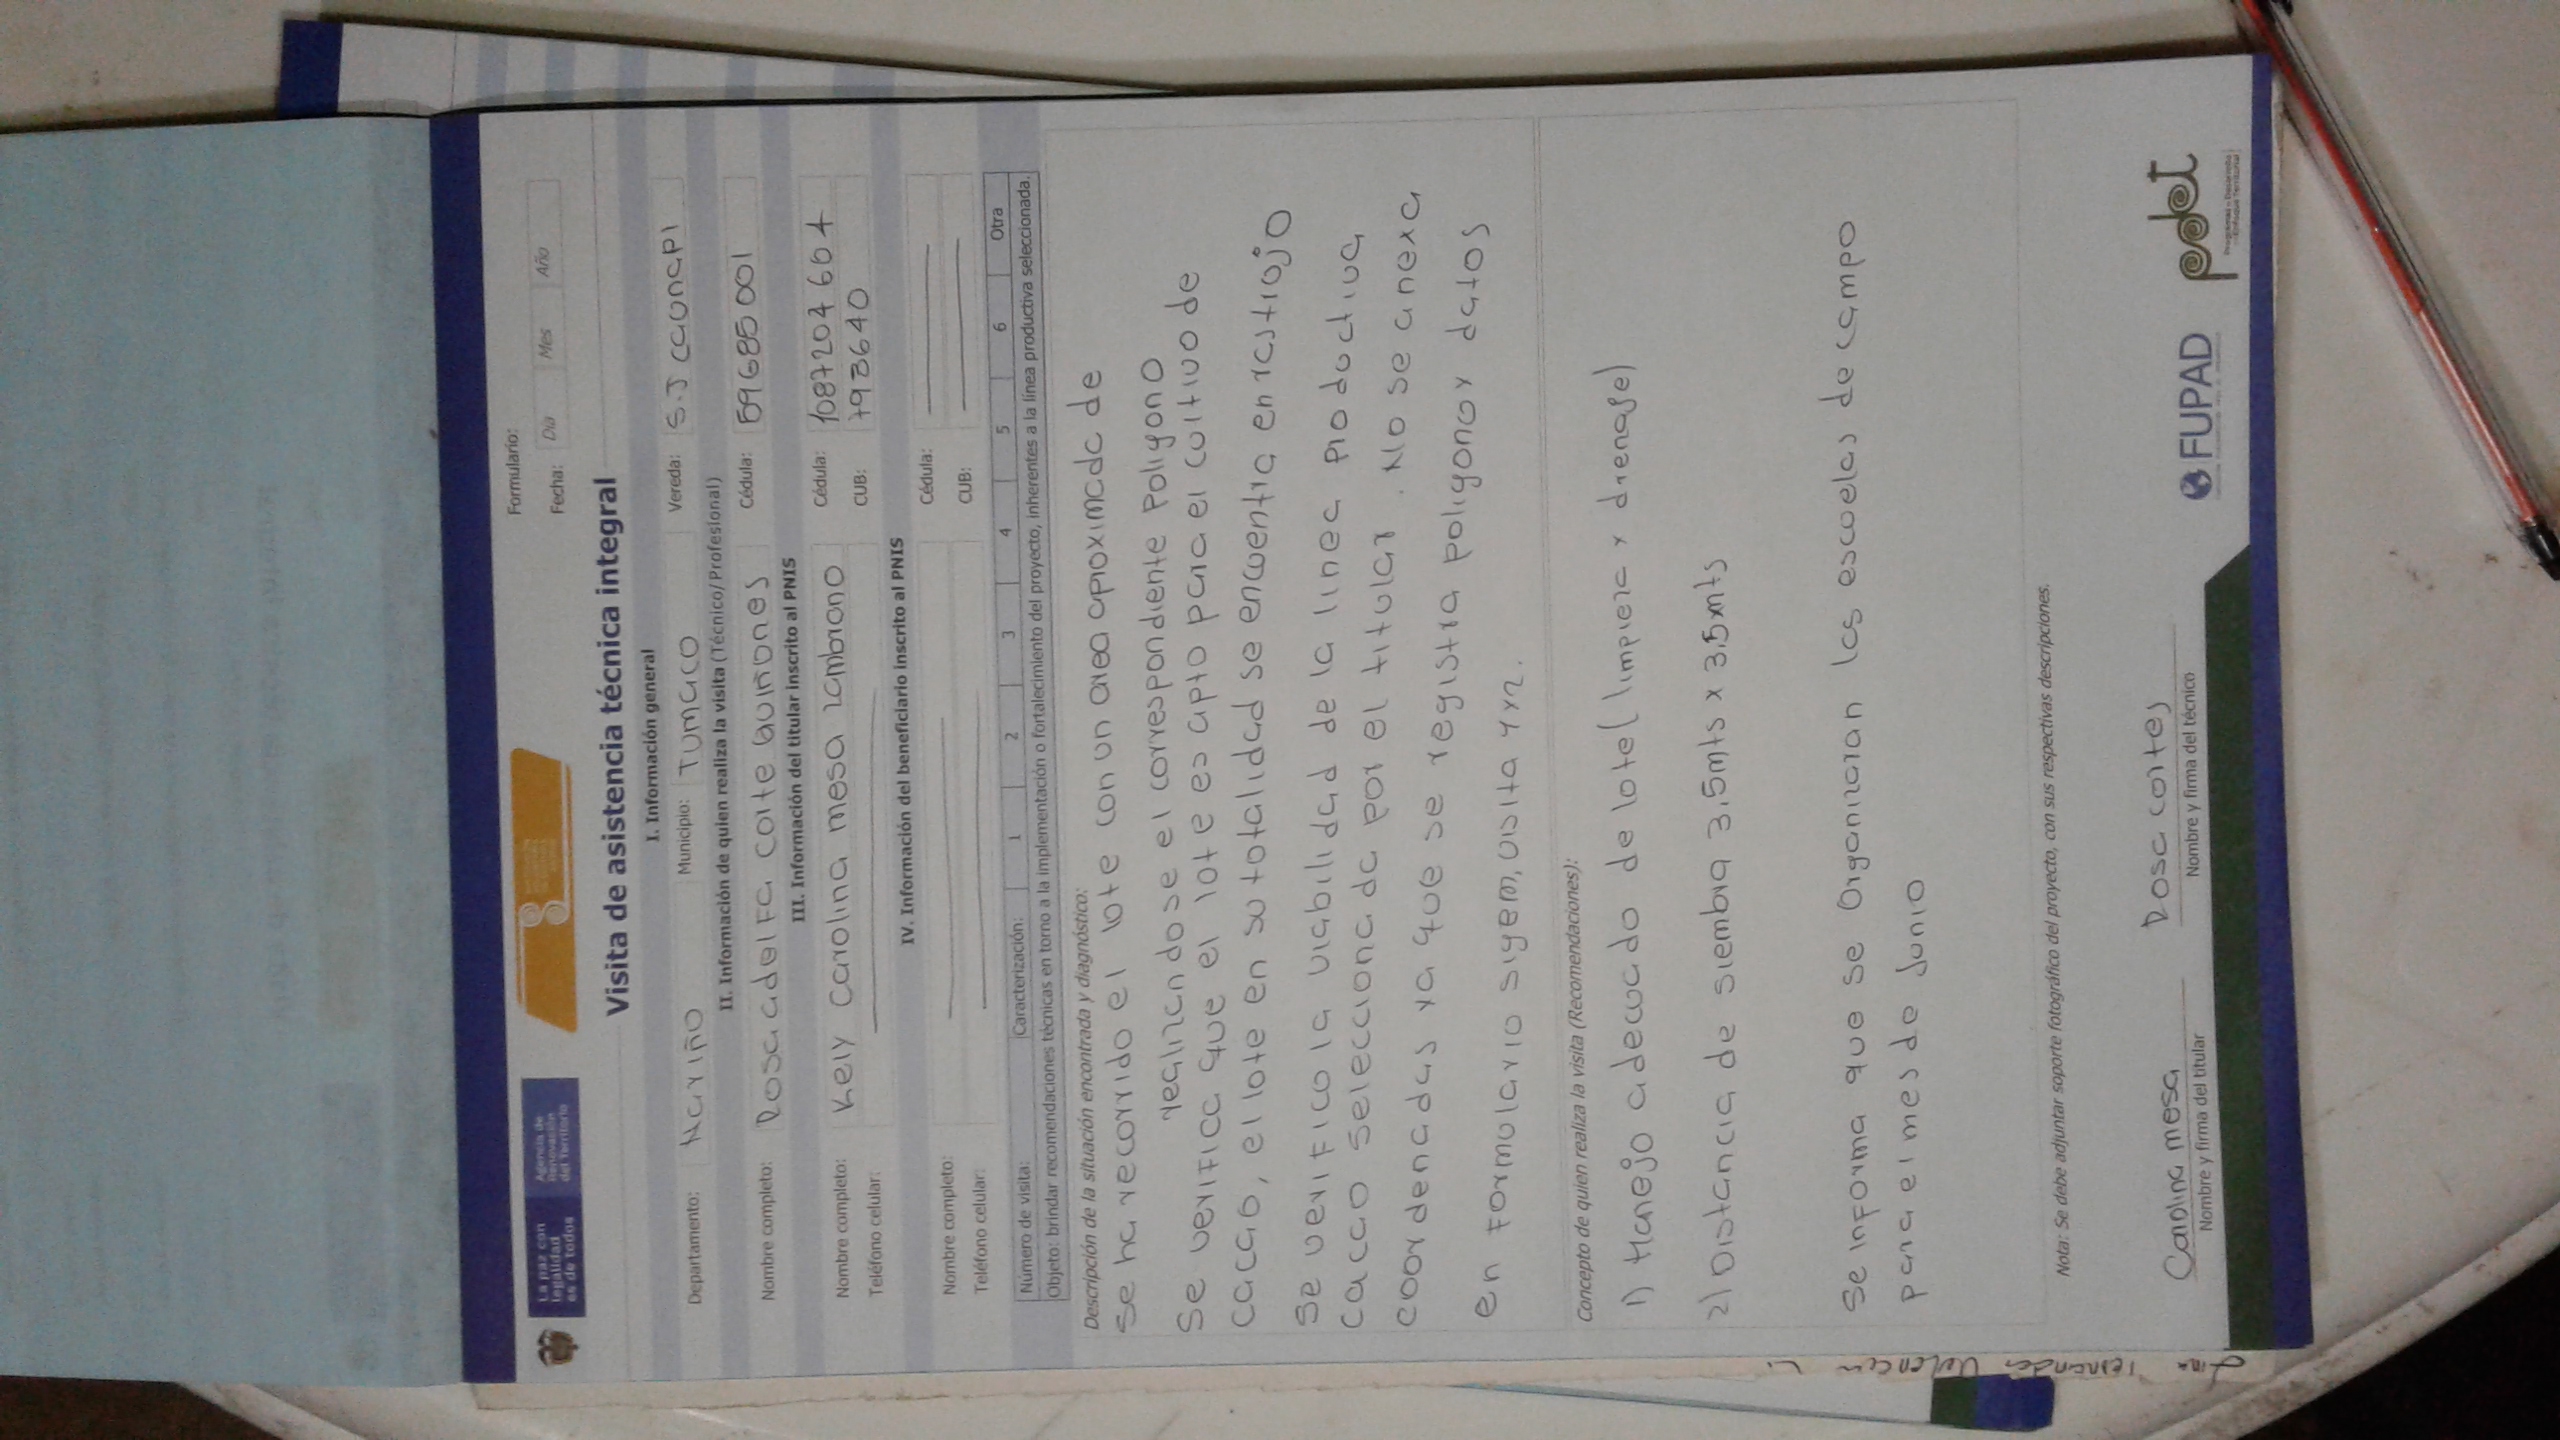 La paz con
legalidad
es de todos
Agencia de
Renovación
del Territorio
Formulario:
Fecha: Día Mes Año
Visita de asistencia técnica integral
I. Información general
Departamento: Nariño Municipio: Tumaco Vereda: S.J caunapi
II. Información de quien realiza la visita (Técnico/Profesional)
Nombre completo: Rosa adelfa corte quiñones Cédula: 59685001
III. Información del titular inscrito al PNIS
Nombre completo: Kely carolina mesa zambrano Cédula: 1087204604
Teléfono celular: CUB: 793640
IV. Información del beneficiario inscrito al PNIS
Nombre completo: Cédula:
Teléfono celular: CUB:
Número de visita: Caracterización: 1 2 3 4 5 6 Otra
Objeto: brindar recomendaciones técnicas en torno a la implementación o fortalecimiento del proyecto, inherentes a la línea productiva seleccionada.
Descripción de la situación encontrada y diagnóstico:
Se ha recorrido el lote con un area aproximada de
realizandose el correspondiente poligono
Se verifica que el lote es apto para el cultivo de
cacao, el lote en su totalidad se encuentra en rastrojo
Se verifico la viabilidad de la linea productiva
cacao seleccionada por el titular. No se anexa
coordenadas ya que se registra poligono y datos
en formulario sigem, visita 1x2.
Concepto de quien realiza la visita (Recomendaciones):
1) Manejo adecuado de lote( limpieza y drenage)
2) Distancia de siembra 3.5mts x 3.5mts
Se informa que se Organizaran las escuelas de campo
para el mes de Junio
Nota: Se debe adjuntar soporte fotográfico del proyecto, con sus respectivas descripciones.
Carolina mesa
Nombre y firma del titular
Rosa cortes
Nombre y firma del técnico
FUPAD
pdet
Programas de Desarrollo
con Enfoque Territorial